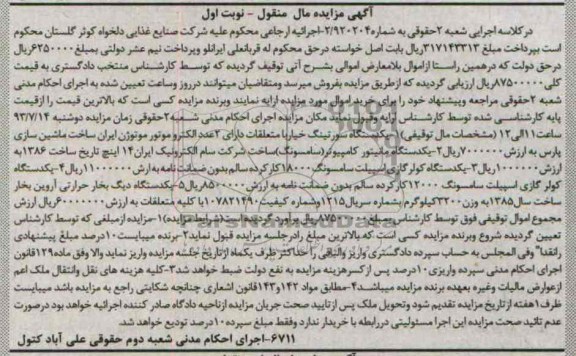 آگهی مزایده مال منقول - نوبت اول
درکلاسه اجرایی شعبه ۲حقوقی به شماره۲/۹۲۰۲۰۴-اجرائیه ارجاعی محکوم علیه شرکت صنایع غذایی دلخواه کوثر گلستان محکوم
است بپرداخت مبلغ ۳۱۷۱۴۳۳۱۳ریال بابت اصل خواسته درحق محکوم له قربانعلی ایرانلو وپرداخت نیم عشر دولتی بمبلغ۶۲۵۰۰۰۰ریال
درحق دولت که درهمین راستا ازاموال بلامعارض اموالی بشرح آتی توقیف گردیده که توسط کارشناس منتخب دادگستری به قیمت
کلی۸۷۵۰۰۰۰۰ریال ارزیابی گردیده که ازطریق مزایده بفروش میرسد ومتقاضیان میتوانند درروز وساعت تعیین شده به اجرای احکام مدنی
شعبه ۲حقوقی مراجعه وپیشنهاد خود را برای خرید اموال مورد مزایده ارایه نمایند وبرنده مزایده کسی است که بالاترین قیمت را ازقیمت
پایه کارشناسی شده توسط کارشناس ارایه وقبول نماید مکان مزایده اجرای احکام مدنی شعبه۲حقوقی زمان مزایده دوشنبه ۹۳/۷/۱۴
ساعت۱۱الی۱۲(مشخصات مال توقیفی) ۱-یکدستگاه سورتینگ خیار با متعلقات دارای ۲عدد الکترو موتور موتوژن ایران ساخت ماشین سازی
پارس به ارزش۷۰۰۰۰۰۰ریال۲-یکدستگاه مانیتور کامپیوتر(سامسونگ)ساخت شرکت سام الکترونیک ایران۱۴ اینچ تاریخ ساخت ۱۳۸۶به
ارزش۱۰۰۰۰۰۰ریال۳-یکدستگاه کولر گازی اسپیلت سامسونگ ۱۸۰۰۰کارکرده سالم بدون ضمانت نامه به ارزش۱۱۰۰۰۰۰۰ریال۴-یکدستگاه
کولر گازی اسپیلت سامسونگ ۱۲۰۰۰کارکرده سالم بدون ضمانت نامه به ارزش۸۵۰۰۰۰۰ریال۵-یکدستگاه دیگ بخار حرارتی آروین بخار
ساخت سال۱۳۸۵به وزن۳۲۰۰کیلوگرم بشماره سریال۱۲۱۵وشماره کیفیت۱۰۷۸۲۱۴۹۰با کلیه متعلقات به ارزش۶۰۰۰۰۰۰۰ریال ارزش
مجموع اموال توقیفی فوق توسط کارشناس بمبلغ۸۷۵۰۰۰۰۰ریال برآورد گردیده است(شرایط مزایده)۱-مزایده ازمبلغی که توسط کارشناس
تعیین گردیده شروع وبرنده مزایده کسی است که بالاترین مبلغ رادرجلسه مزایده قبول نماید۲-برنده میبایست۱۰درصد مبلغ پیشنهادی
رانقدا" وفی المجلس به حساب سپرده دادگستری واریز والباقی را حداکثر ظرف یکماه ازتاریخ جلسه مزایده واریز نماید والا وفق ماده۱۲۹قانون
اجرای احکام مدنی سپرده واریزی۱۰درصد پس از کسرهزینه مزایده به نفع دولت ضبط خواهد شد۳-کلیه هزینه های نقل وانتقال ملک اعم
ازعوارض مالیات وغیره بعهده برنده مزایده میباشد۴-مطابق مواد ۱۴۲و۱۴۳قانون اشعاری چنانچه شکایتی راجع به مزایده باشد میبایست
ظرف ۱هفته از تاریخ مزایده تقدیم شود وتحویل ملک پس ازتایید صحت جریان مزایده ازناحیه دادگاه صادر کننده اجرائیه خواهد بود درصورت
عدم تائید صحت مزایده این اجرا مسئولیتی دررابطه با خریدار ندارد وفقط مبلغ سپرده۱۰درصد تودیع خواهد شد.
۶۷۱۱-اجرای احکام مدنی شعبه دوم حقوقی علی آباد کتول